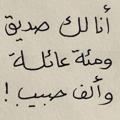 أنا لك صديق
ومئة عائلة
وألف حبيب!